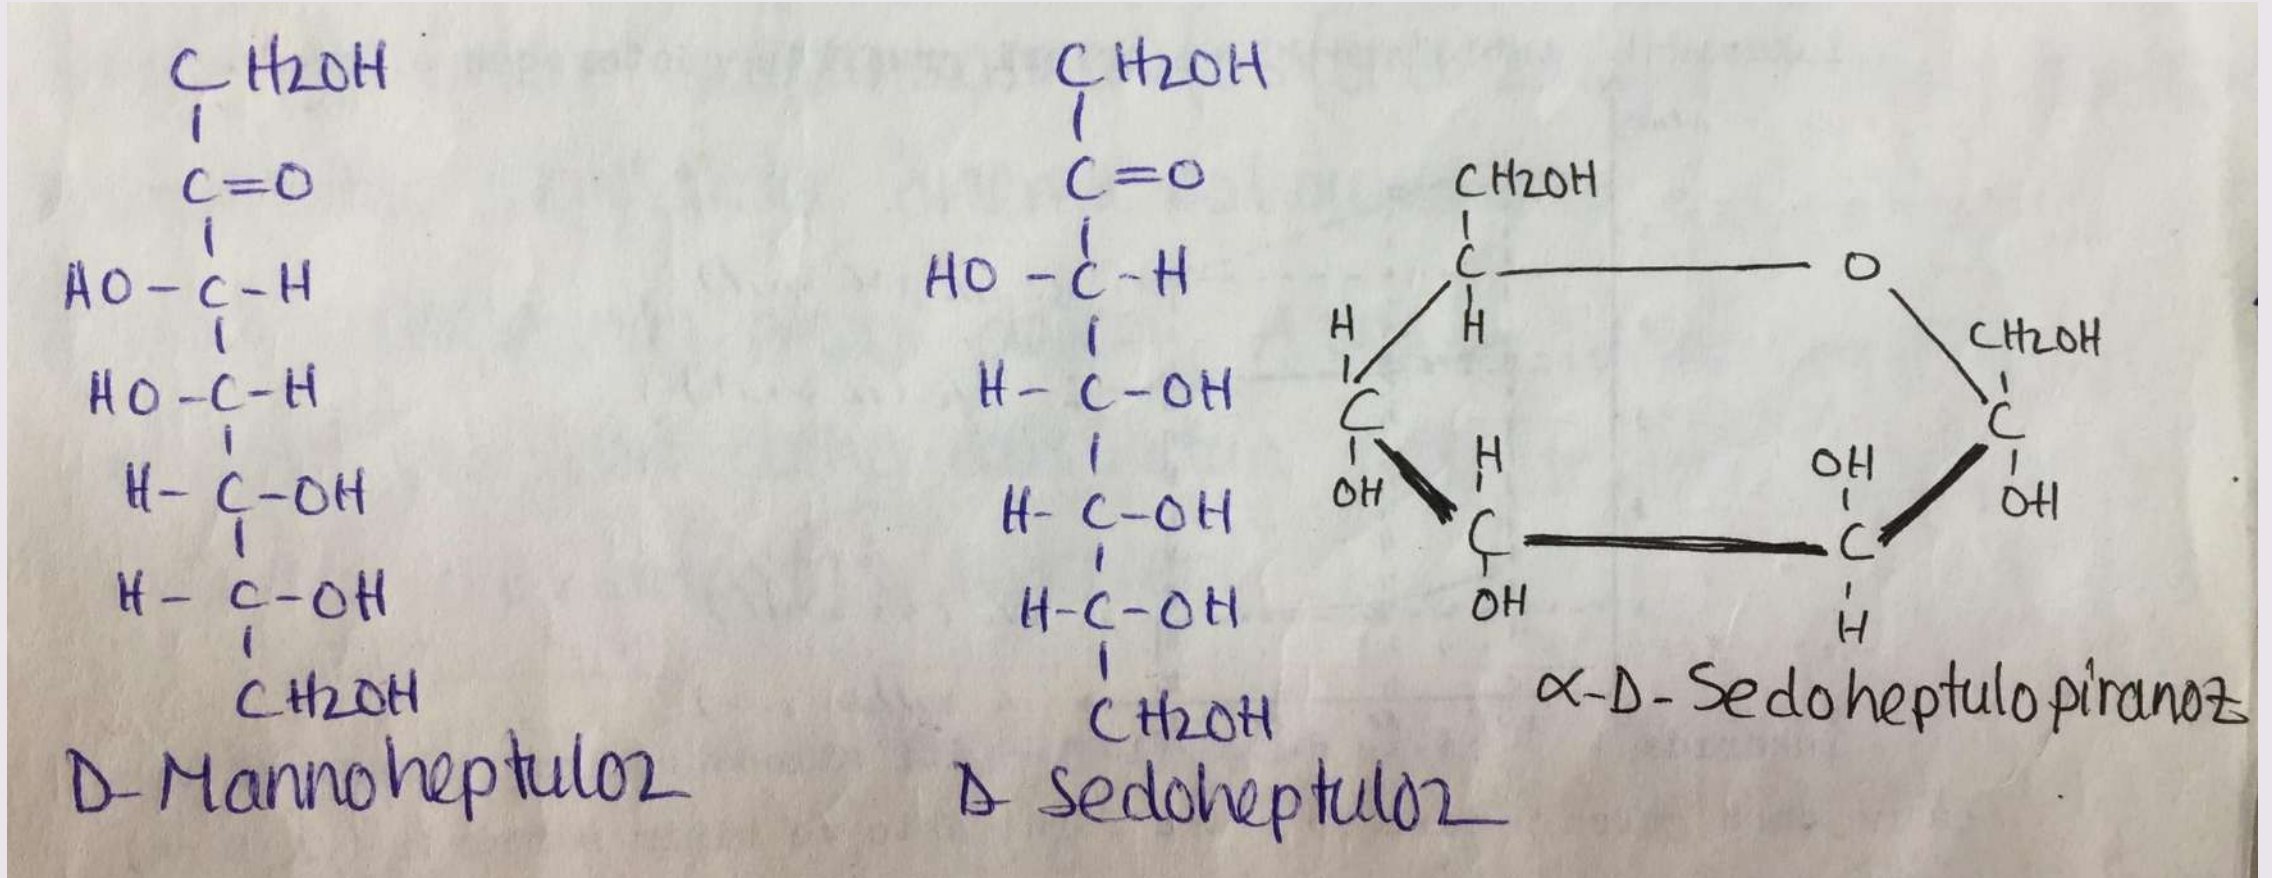 CH2OH
C=O
HO-C-H
HO-C-H
H-C-OH
H-C-OH
CH2OH
D-Mannoheptuloz
CH2OH
C=O
HO-C-H
H-C-OH
H-C-OH
H-C-OH
CH2OH
D Sedoheptuloz
CH2OH
C O
H H CH2OH
C C
H OH
OH OH
C C
OH H
α-D-Sedoheptulopiranoz